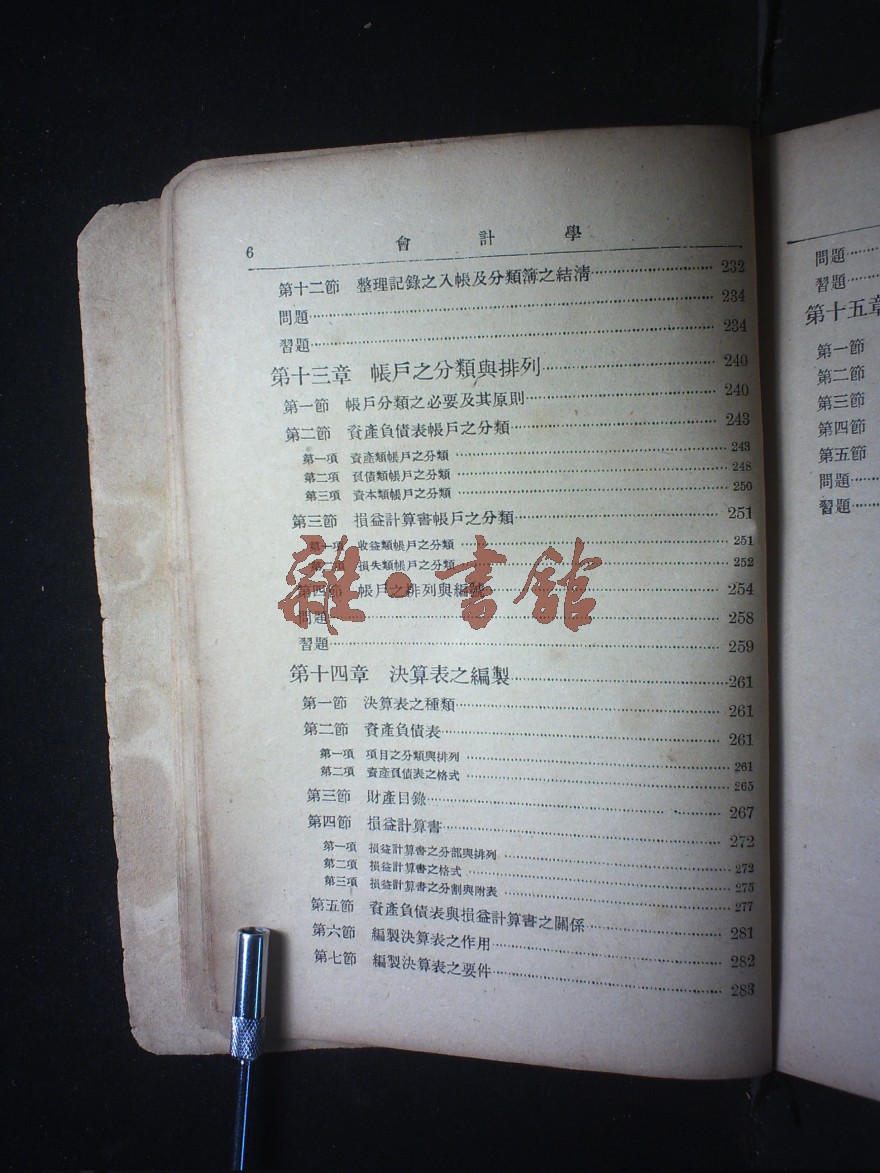 6 會計學
第十二節 整理記錄之入帳及分類簿之結清 232
問題 234
習題 234
第十三章 帳戶之分類與排列 240
第一節 帳戶分類之必要及其原則 240
第二節 資產負債表帳戶之分類 243
第一項 資產類帳戶之分類 243
第二項 負債類帳戶之分類 248
第三項 資本類帳戶之分類 250
第三節 損益計算書帳戶之分類 251
第一項 收益類帳戶之分類 251
第二項 損失類帳戶之分類 252
第四節 帳戶之排列與編號 254
問題 258
習題 259
雜·書館
第十四章 決算表之編製 261
第一節 決算表之種類 261
第二節 資產負債表 261
第一項 項目之分類與排列 261
第二項 資產負債表之格式 265
第三節 財產目錄 267
第四節 損益計算書 272
第一項 損益計算書之分部與排列 272
第二項 損益計算書之格式 275
第三項 損益計算書之分割與附表 277
第五節 資產負債表與損益計算書之關係 281
第六節 編製決算表之作用 282
第七節 編製決算表之要件 283
問題
習題
第十五章
第一節
第二節
第三節
第四節
第五節
問題
習題